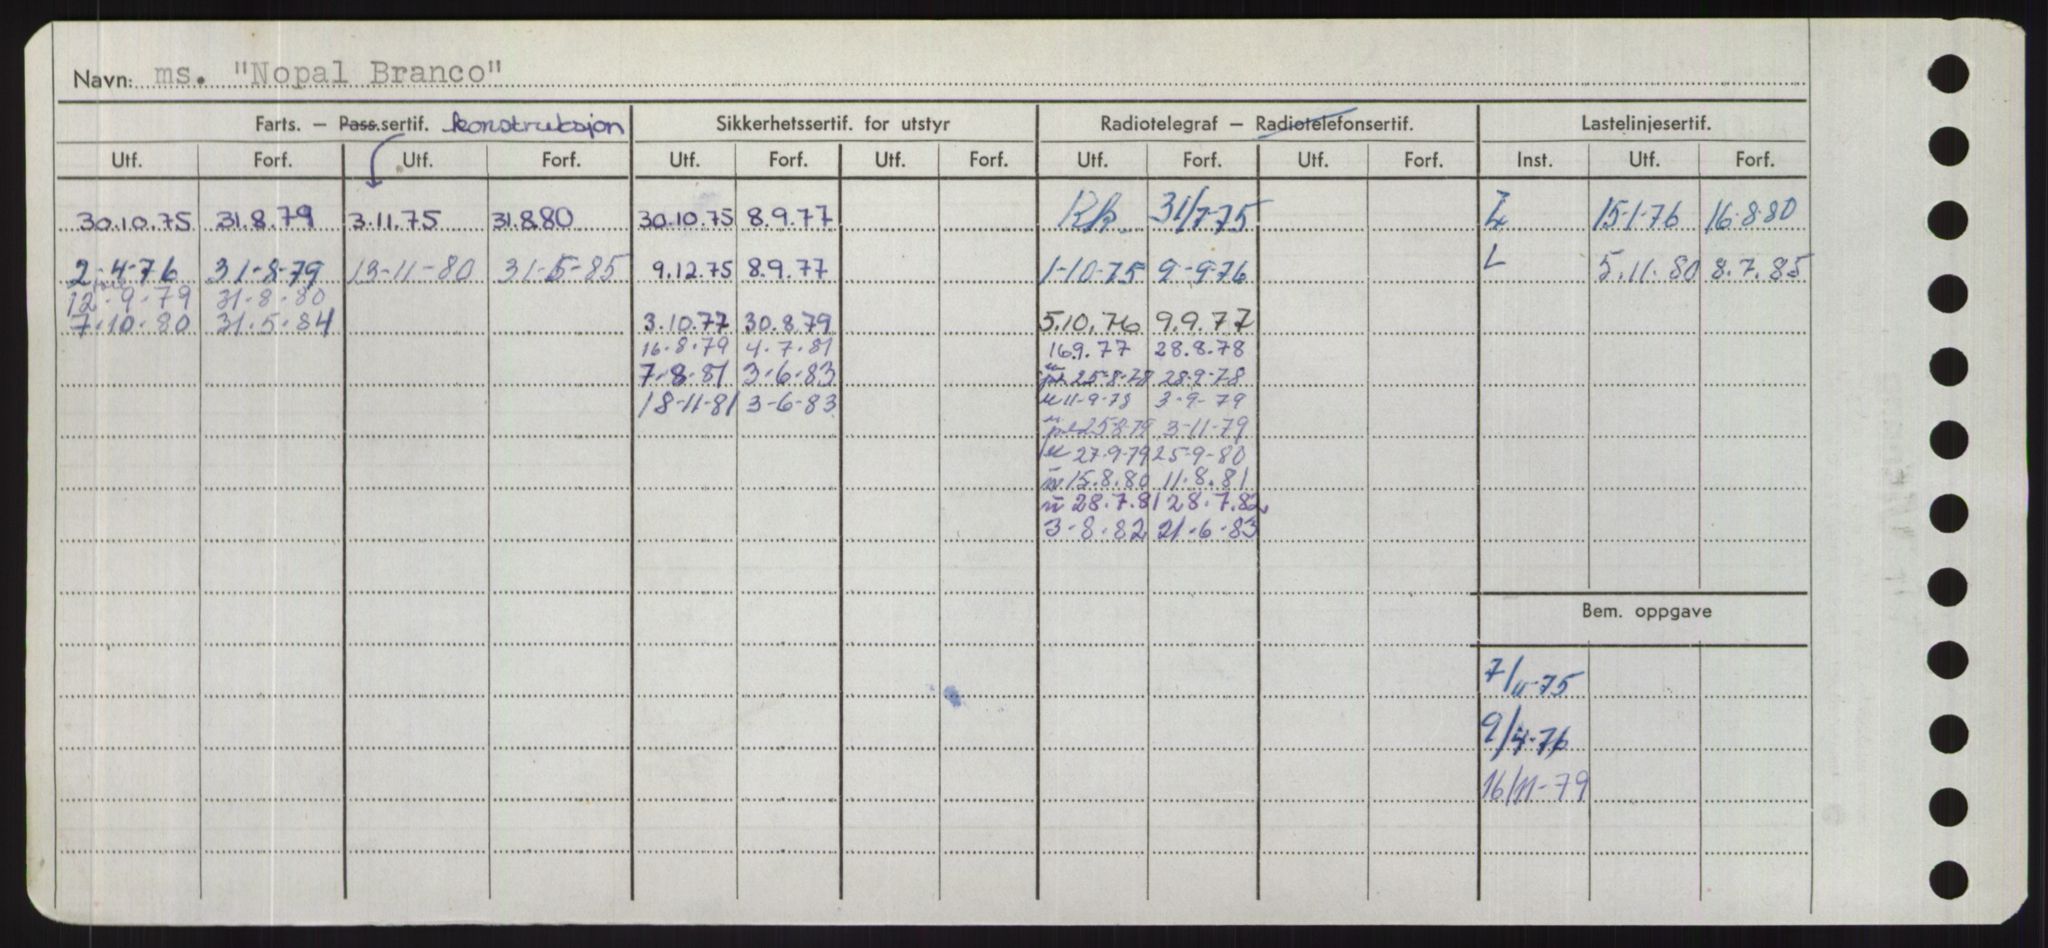 Navn: ms. "Nopal Branco"
Farts. — Pass.sertif. konstruksjon Sikkerhetssertif. for utstyr Radiotelegraf — Radiotelefonsertif. Lastelinjesertif.
Utf. Forf. Utf. Forf. Utf. Forf. Utf. Forf. Utf. Forf. Utf. Forf. Inst. Utf. Forf.
30.10.75 31.8.79 3.11.75 31.8.80 30.10.75 8.9.77 31/7-75 L 15-1-76 16-8-80
2-4-76 31-8-79 13-11-80 31-5-85 9.12.75 8.9.77 1-10-75 9-9-76 L 5.11.80 8.7.85
12-9-79 31-8-80
7-10-80 31-5-84 3.10.77 30.8.79 5.10.76 9.9.77
16-8-79 4-7-81 16.9.77 28.8.78
7-8-81 3-6-83 25-8-78 28-9-78
18-11-81 3-6-83 11-9-78 3-9-79
25-8-79 3-11-79
27-9-79 25-9-80
15.8.80 11.8.81
28.7.81 28.7.82
3-8-82 21-6-83
Bem. oppgave
7/11-75
9/4-76
16/11-79